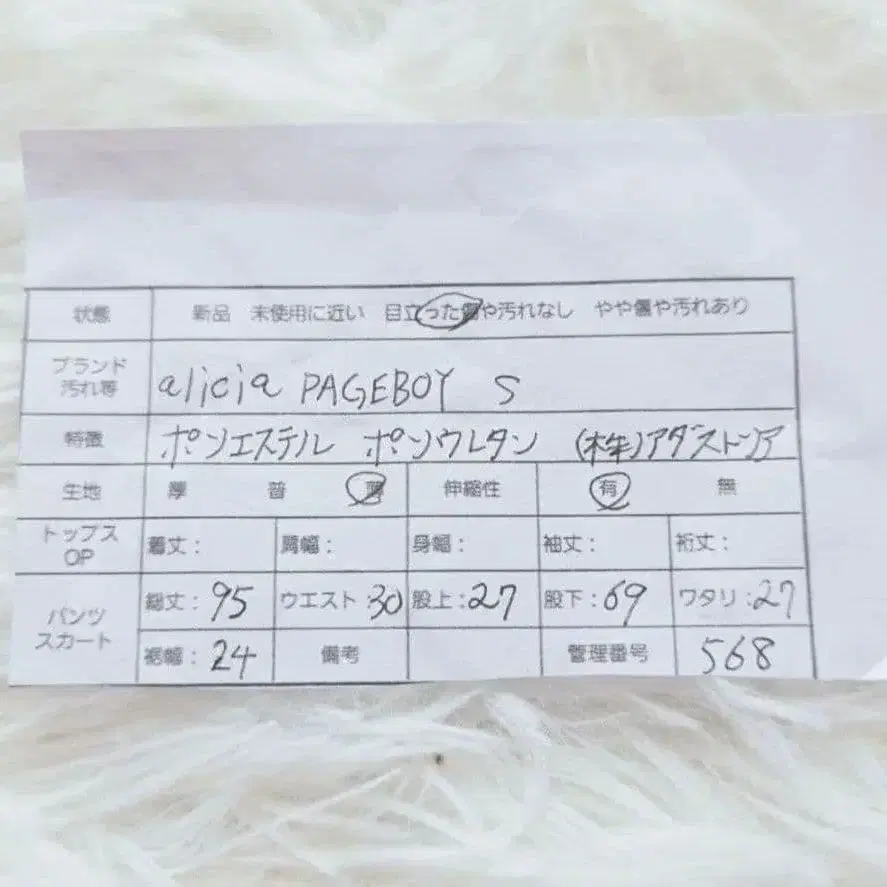 状態 新品 未使用に近い 目立った傷や汚れなし やや傷や汚れあり
ブランド
汚れ等 alicia PAGEBOY S
特徴 ポンエステル ポンウレタン (株)アダストンア
生地 厚 普 薄 伸縮性 有 無
トップス
OP 着丈: 肩幅: 身幅: 袖丈: 裄丈:
パンツ
スカート 総丈: 95 ウエスト:30 股上:27 股下:69 ワタリ:27
裾幅: 24 備考 管理番号 568